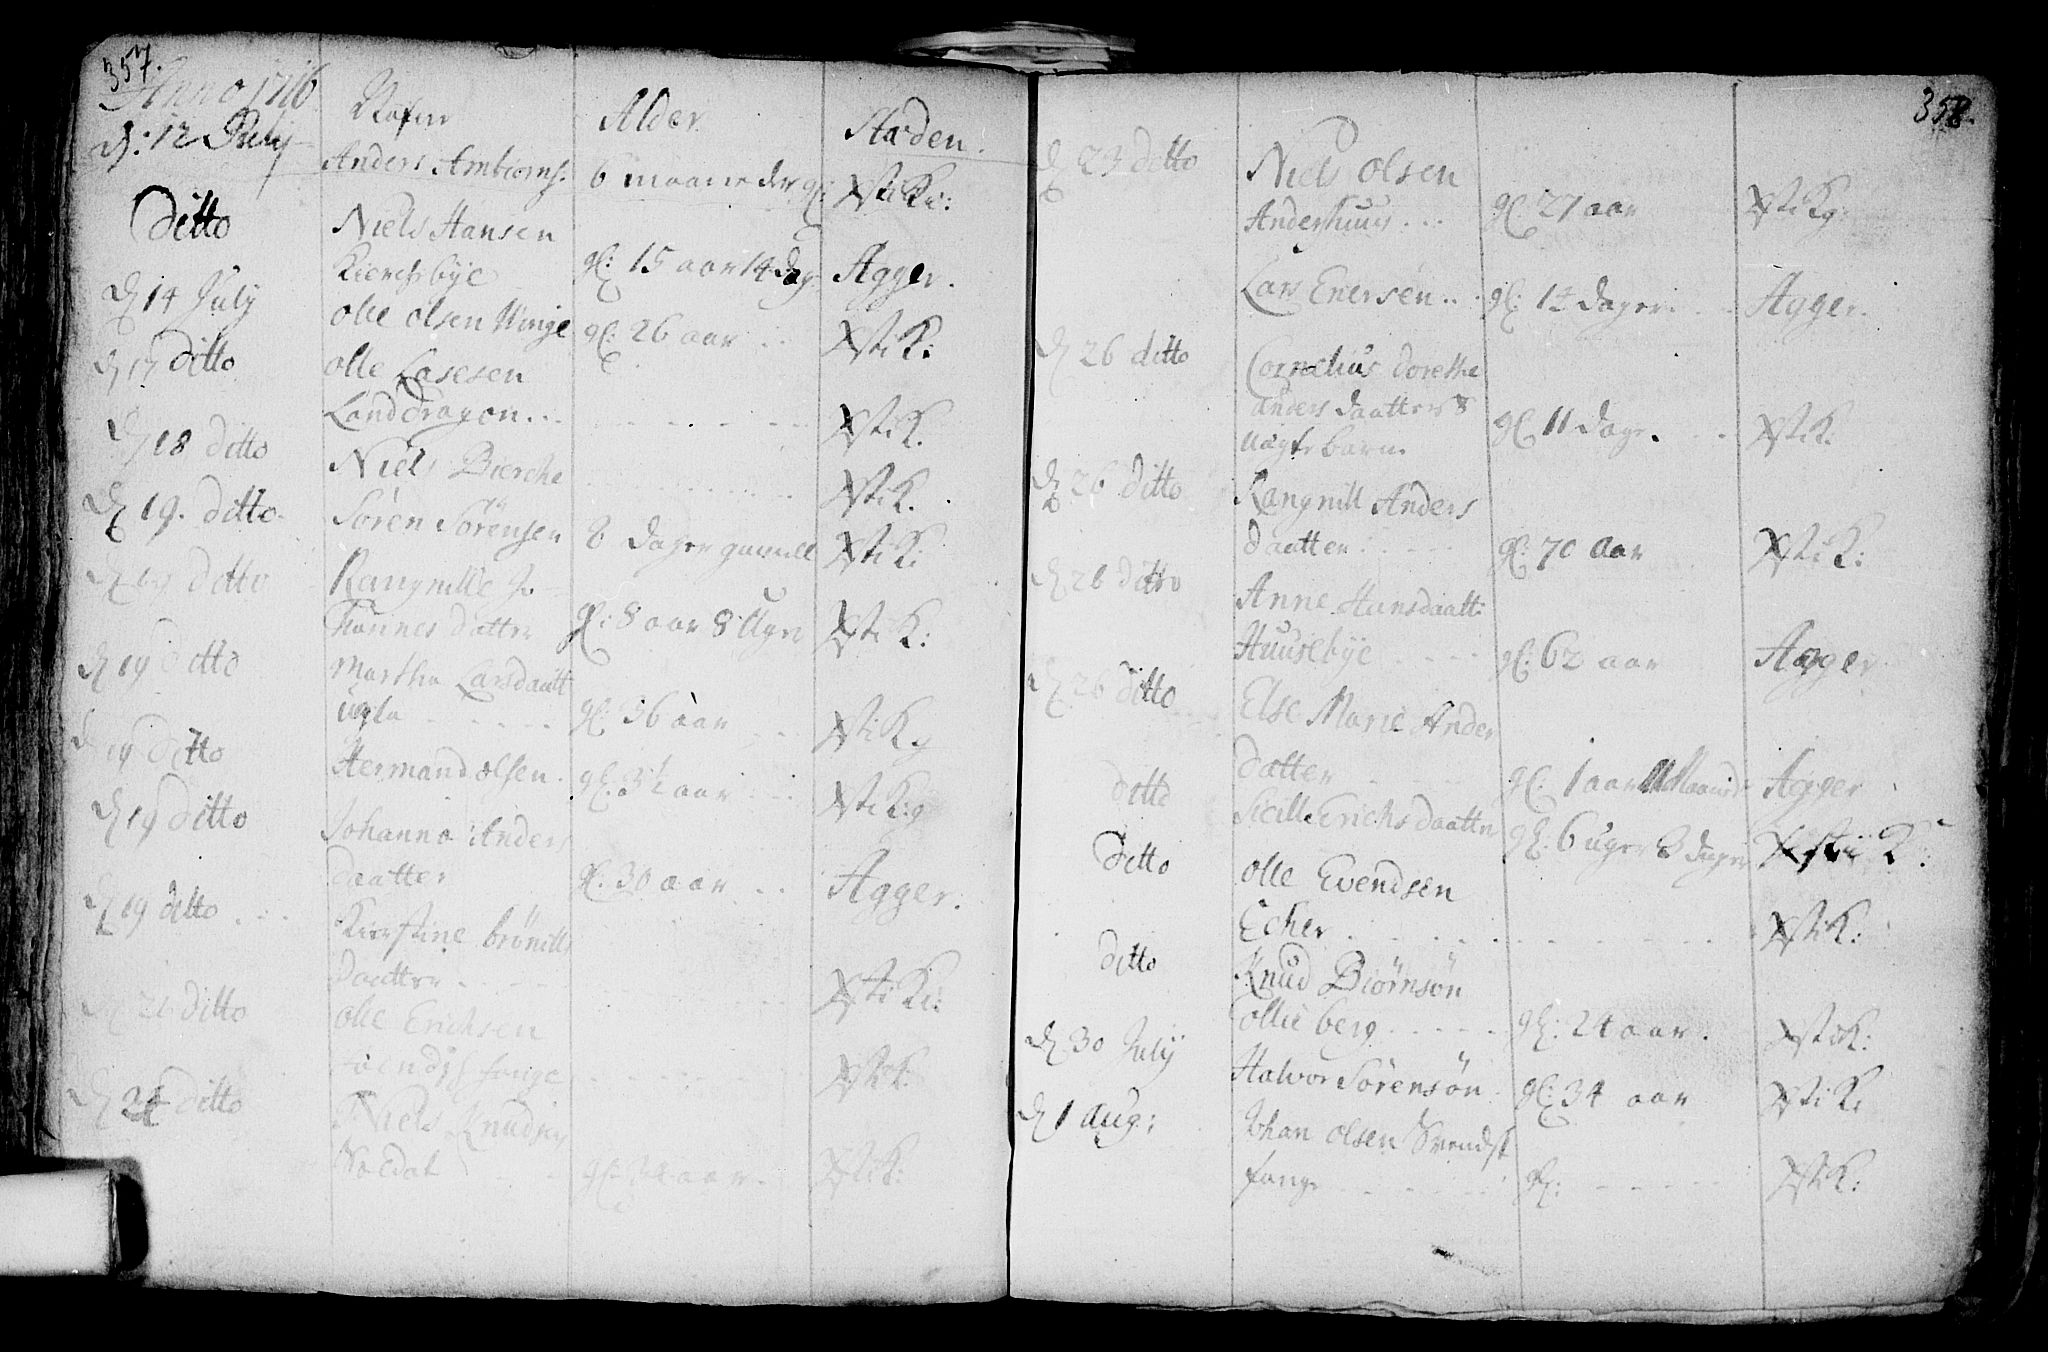 357.
Anno 1716 Nafn Alder Staden.
d: 12 July Anders Ambiorns: 6 maaneder gl: XstiKi:
Ditto Niels Hansen
Kierchbye gl: 15 aar 14 dag Agger.
d 14 July olle olsen Winge gl: 26 aar .. XstiK:
d 17 Ditto olle Lasesen
Land dragon... - - - - - XstiK.
d 18 Ditto Niels Bierche - - - - - XstiK.
d 19. Ditto Sören Sörensen 8 dager gamell XstiK:
d 19 Ditto Rangnille Jo
hannes Datter gl: 8 aar 8 Uger XstiK:
d 19 Ditto Martha Larsdaatt
- - - - gl: 36 aar XtiKg
d 19 Ditto Hermand olsen. gl: 3½ aar XtiK:g
d 19 Ditto Johanna Anders
daatter gl: 30 aar .. Agger.
d 19 ditto ... Kierstine brönills
daatter - - - - XstiKi:
d 21 ditto olle Erichsen
fange - - - - - XstK:
d 24 Ditto Niels Knudsen
Soldat gl: aar. XstiK:
358.
d 23 ditto Niels olsen
Andershuus ... gl: 27 aar XstiKg:
Lars Enersen... gl: 14 dager. Agger.
d 26 ditto Cornelius dorethe
anders daatters
uegte barn gl 11 dage. XstiK:
d 26 ditto Rangnill Anders
daatter - - - gl: 70 aar XstiK:
d 26 ditto Anne Hansdaatt:
Huusebye - - - - gl: 62 aar Agger
d 26 ditto Else Marie Ander
datter gl: 1 aar 11 Maaneder Agger
ditto Sicille Erichsdaatter gl: 6 uger 3 dager XsstiK:
Ditto olle Evendsen
Echer . . . . . . . . . . XstiK:
ditto Knud Biörnsön
ollie berg - - - - - gl: 24 aar. XstiK:
d 30 July Halvor Sörensön gl: 34 aar XstiK:
d 1 aug: Johan olsen Svendsk
fange - - - - gl: - - - - XstiK: